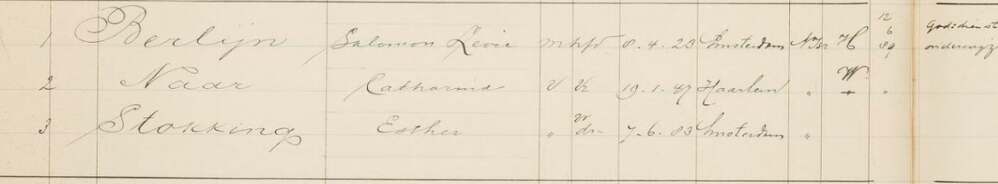 1 Berlijn Salomon Levie m hfd 8.4.23 Amsterdam N Isr H 12 6 89 Godsdienst
2 Naar Catharina V Vr 19.1.47 Haarlem " W "
3 Stokking Esther " dr 7.6.83 Amsterdam "